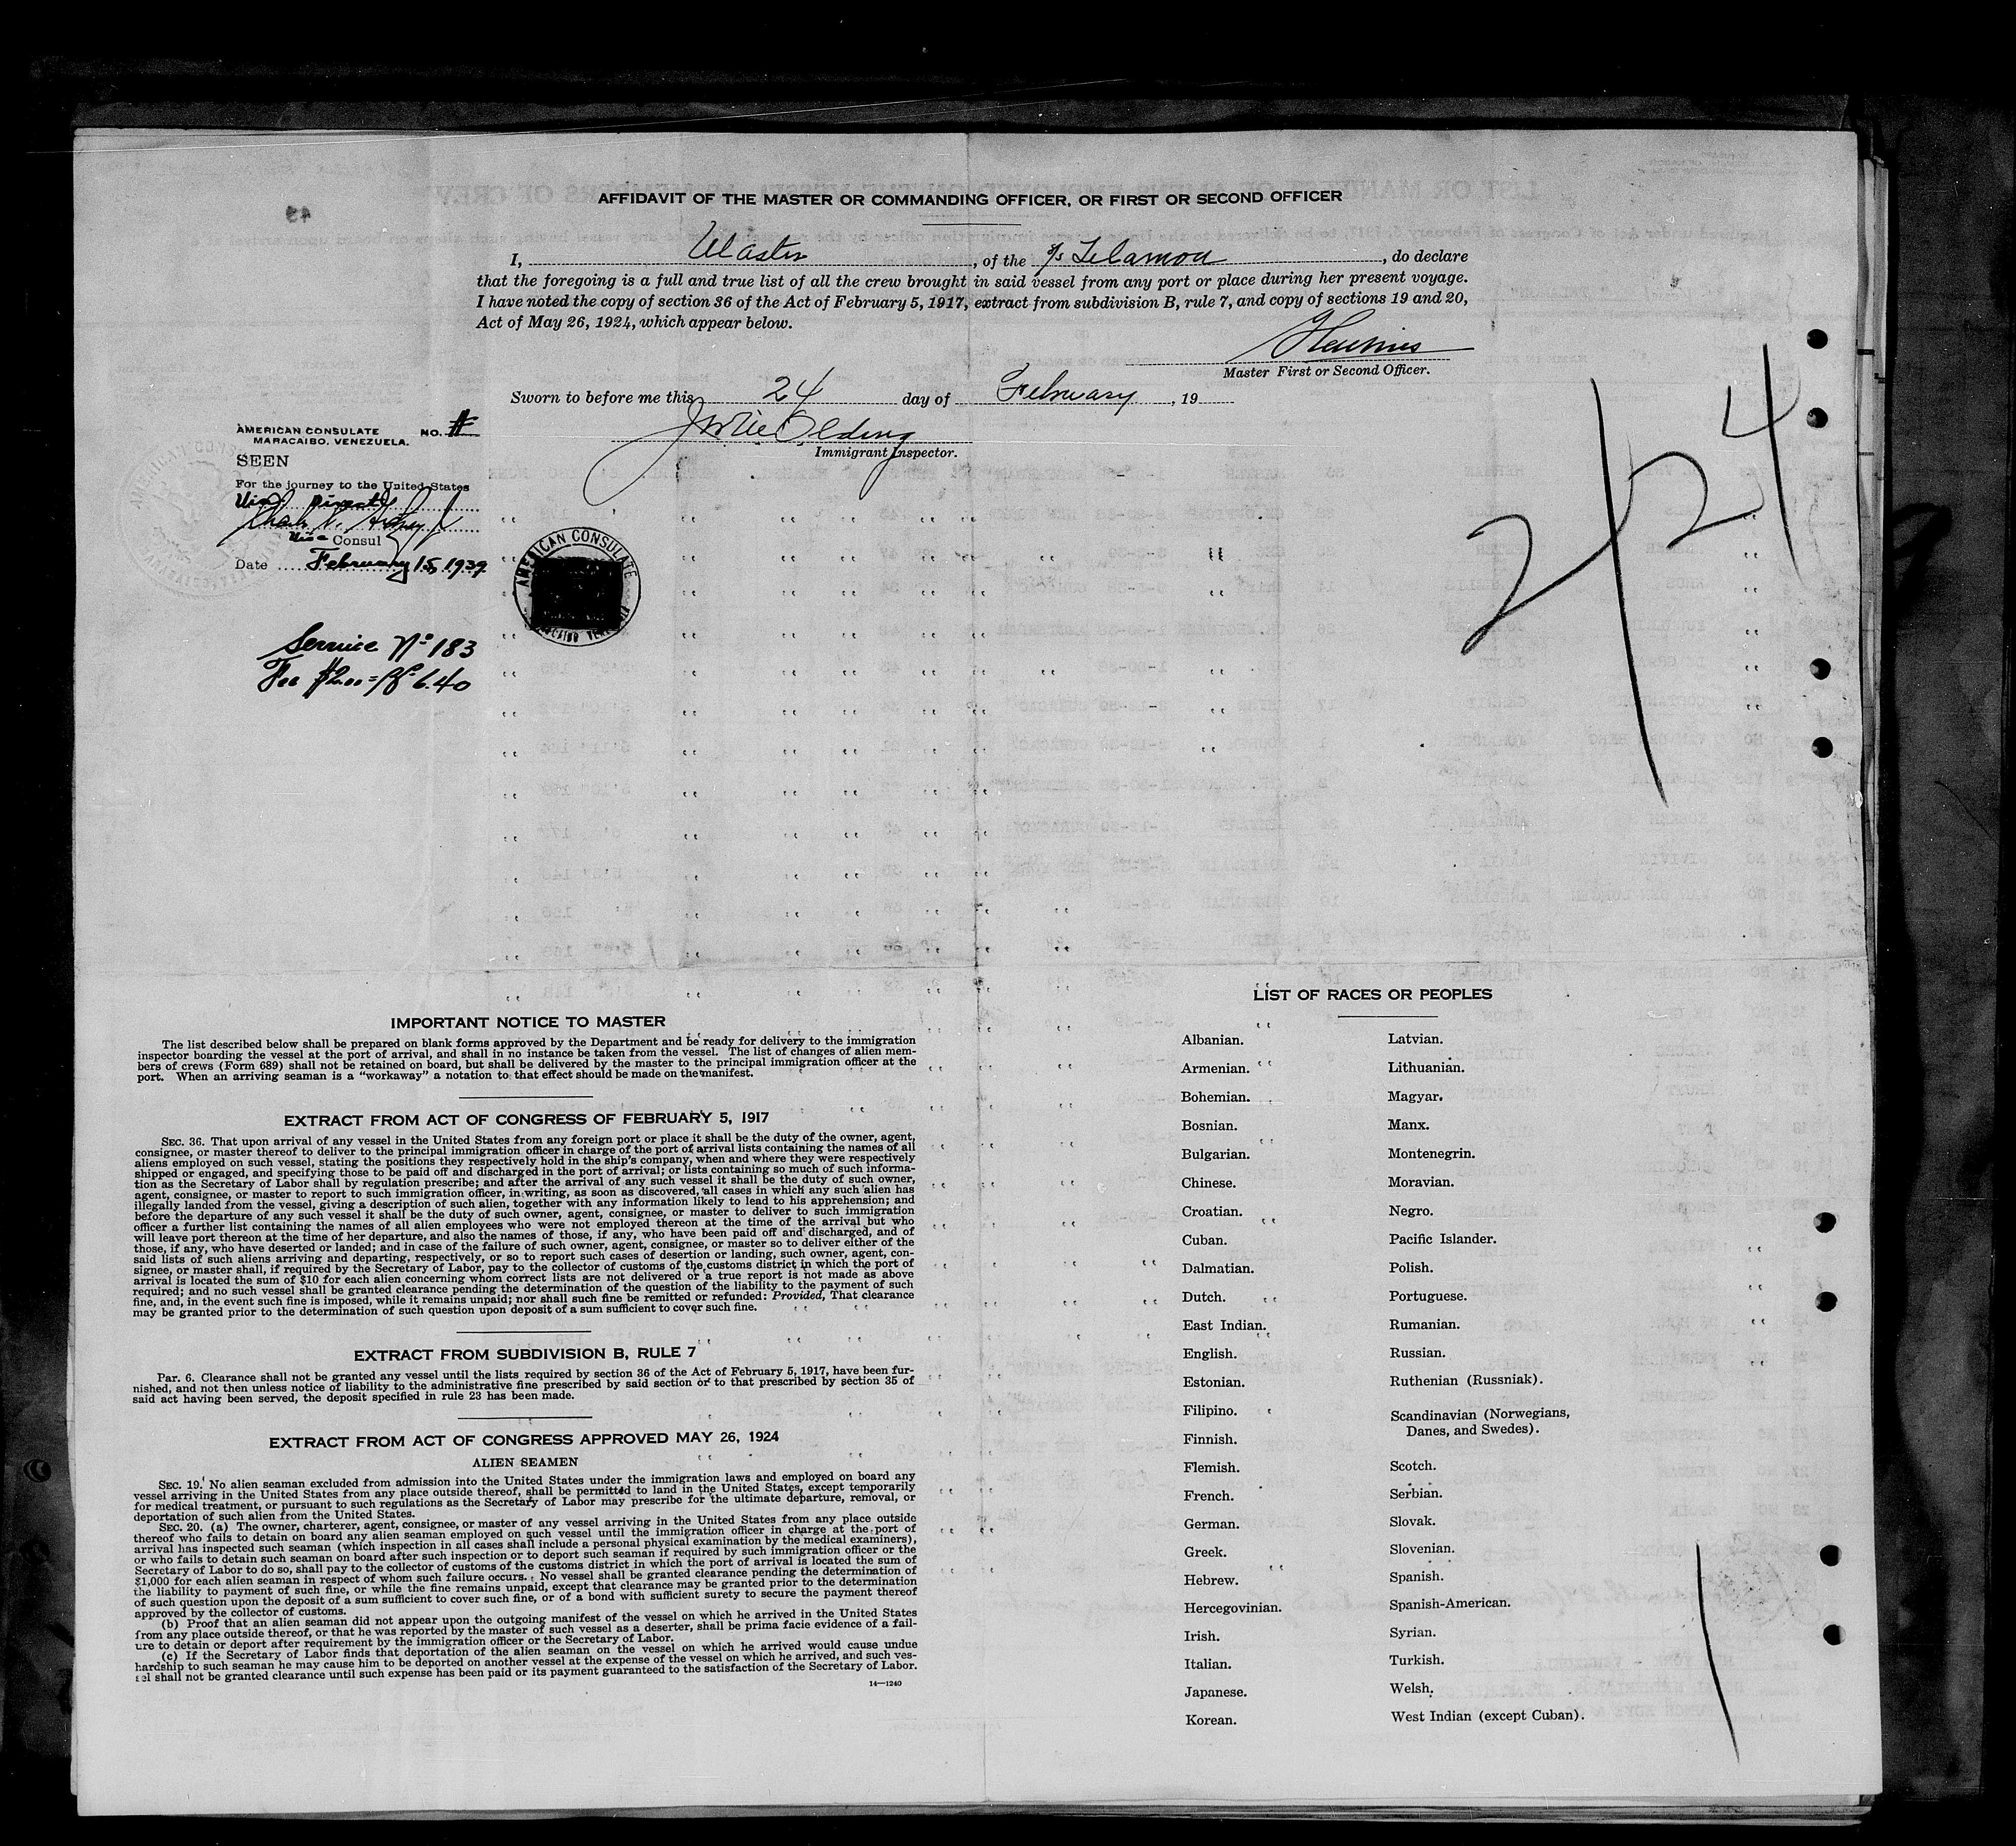 AFFIDAVIT OF THE MASTER OR COMMANDING OFFICER, OR FIRST OR SECOND OFFICER
I, Master, of the s/s Telamon, do declare
that the foregoing is a full and true list of all the crew brought in said vessel from any port or place during her present voyage.
I have noted the copy of section 36 of the Act of February 5, 1917, extract from subdivision B, rule 7, and copy of sections 19 and 20,
Act of May 26, 1924, which appear below.
Master First or Second Officer.
Sworn to before me this 24 day of February, 19
Immigrant Inspector.
AMERICAN CONSULATE NO. #
MARACAIBO, VENEZUELA.
SEEN
For the journey to the United States
Via: Direct
Vice Consul
Date February 15, 1939
AMERICAN CONSULATE
Service Nº 183
Fee $2.00 = Bs 6.40
2/24
IMPORTANT NOTICE TO MASTER
The list described below shall be prepared on blank forms approved by the Department and be ready for delivery to the immigration
inspector boarding the vessel at the port of arrival, and shall in no instance be taken from the vessel. The list of changes of alien mem-
bers of crews (Form 689) shall not be retained on board, but shall be delivered by the master to the principal immigration officer at the
port. When an arriving seaman is a "workaway" a notation to that effect should be made on the manifest.
EXTRACT FROM ACT OF CONGRESS OF FEBRUARY 5, 1917
SEC. 36. That upon arrival of any vessel in the United States from any foreign port or place it shall be the duty of the owner, agent,
consignee, or master thereof to deliver to the principal immigration officer in charge of the port of arrival lists containing the names of all
aliens employed on such vessel, stating the positions they respectively hold in the ship's company, when and where they were respectively
shipped or engaged, and specifying those to be paid off and discharged in the port of arrival; or lists containing so much of such informa-
tion as the Secretary of Labor shall by regulation prescribe; and after the arrival of any such vessel it shall be the duty of such owner,
agent, consignee, or master to report to such immigration officer, in writing, as soon as discovered, all cases in which any such alien has
illegally landed from the vessel, giving a description of such alien, together with any information likely to lead to his apprehension; and
before the departure of any such vessel it shall be the duty of such owner, agent, consignee, or master to deliver to such immigration
officer a further list containing the names of all alien employees who were not employed thereon at the time of the arrival but who
will leave port thereon at the time of her departure, and also the names of those, if any, who have been paid off and discharged, and of
those, if any, who have deserted or landed; and in case of the failure of such owner, agent, consignee, or master so to deliver either of the
said lists of such aliens arriving and departing, respectively, or so to report such cases of desertion or landing, such owner, agent, con-
signee, or master shall, if required by the Secretary of Labor, pay to the collector of customs of the customs district in which the port of
arrival is located the sum of $10 for each alien concerning whom correct lists are not delivered or a true report is not made as above
required; and no such vessel shall be granted clearance pending the determination of the question of the liability to the payment of such
fine, and, in the event such fine is imposed, while it remains unpaid; nor shall such fine be remitted or refunded: Provided, That clearance
may be granted prior to the determination of such question upon deposit of a sum sufficient to cover such fine.
EXTRACT FROM SUBDIVISION B, RULE 7
Par. 6. Clearance shall not be granted any vessel until the lists required by section 36 of the Act of February 5, 1917, have been fur-
nished, and not then unless notice of liability to the administrative fine prescribed by said section or to that prescribed by section 35 of
said act having been served, the deposit specified in rule 23 has been made.
EXTRACT FROM ACT OF CONGRESS APPROVED MAY 26, 1924
ALIEN SEAMEN
SEC. 19. No alien seaman excluded from admission into the United States under the immigration laws and employed on board any
vessel arriving in the United States from any place outside thereof, shall be permitted to land in the United States, except temporarily
for medical treatment, or pursuant to such regulations as the Secretary of Labor may prescribe for the ultimate departure, removal, or
deportation of such alien from the United States.
SEC. 20. (a) The owner, charterer, agent, consignee, or master of any vessel arriving in the United States from any place outside
thereof who fails to detain on board any alien seaman employed on such vessel until the immigration officer in charge at the port of
arrival has inspected such seaman (which inspection in all cases shall include a personal physical examination by the medical examiners),
or who fails to detain such seaman on board after such inspection or to deport such seaman if required by such immigration officer or the
Secretary of Labor to do so, shall pay to the collector of customs of the customs district in which the port of arrival is located the sum of
$1,000 for each alien seaman in respect of whom such failure occurs. No vessel shall be granted clearance pending the determination of
the liability to payment of such fine, or while the fine remains unpaid, except that clearance may be granted prior to the determination
of such question upon the deposit of a sum sufficient to cover such fine, or of a bond with sufficient surety to secure the payment thereof
approved by the collector of customs.
(b) Proof that an alien seaman did not appear upon the outgoing manifest of the vessel on which he arrived in the United States
from any place outside thereof, or that he was reported by the master of such vessel as a deserter, shall be prima facie evidence of a fail-
ure to detain or deport after requirement by the immigration officer or the Secretary of Labor.
(c) If the Secretary of Labor finds that deportation of the alien seaman on the vessel on which he arrived would cause undue
hardship to such seaman he may cause him to be deported on another vessel at the expense of the vessel on which he arrived, and such ves-
sel shall not be granted clearance until such expense has been paid or its payment guaranteed to the satisfaction of the Secretary of Labor.
14—1240
LIST OF RACES OR PEOPLES
Albanian.
Armenian.
Bohemian.
Bosnian.
Bulgarian.
Chinese.
Croatian.
Cuban.
Dalmatian.
Dutch.
East Indian.
English.
Estonian.
Filipino.
Finnish.
Flemish.
French.
German.
Greek.
Hebrew.
Hercegovinian.
Irish.
Italian.
Japanese.
Korean.
Latvian.
Lithuanian.
Magyar.
Manx.
Montenegrin.
Moravian.
Negro.
Pacific Islander.
Polish.
Portuguese.
Rumanian.
Russian.
Ruthenian (Russniak).
Scandinavian (Norwegians,
Danes, and Swedes).
Scotch.
Serbian.
Slovak.
Slovenian.
Spanish.
Spanish-American.
Syrian.
Turkish.
Welsh.
West Indian (except Cuban).